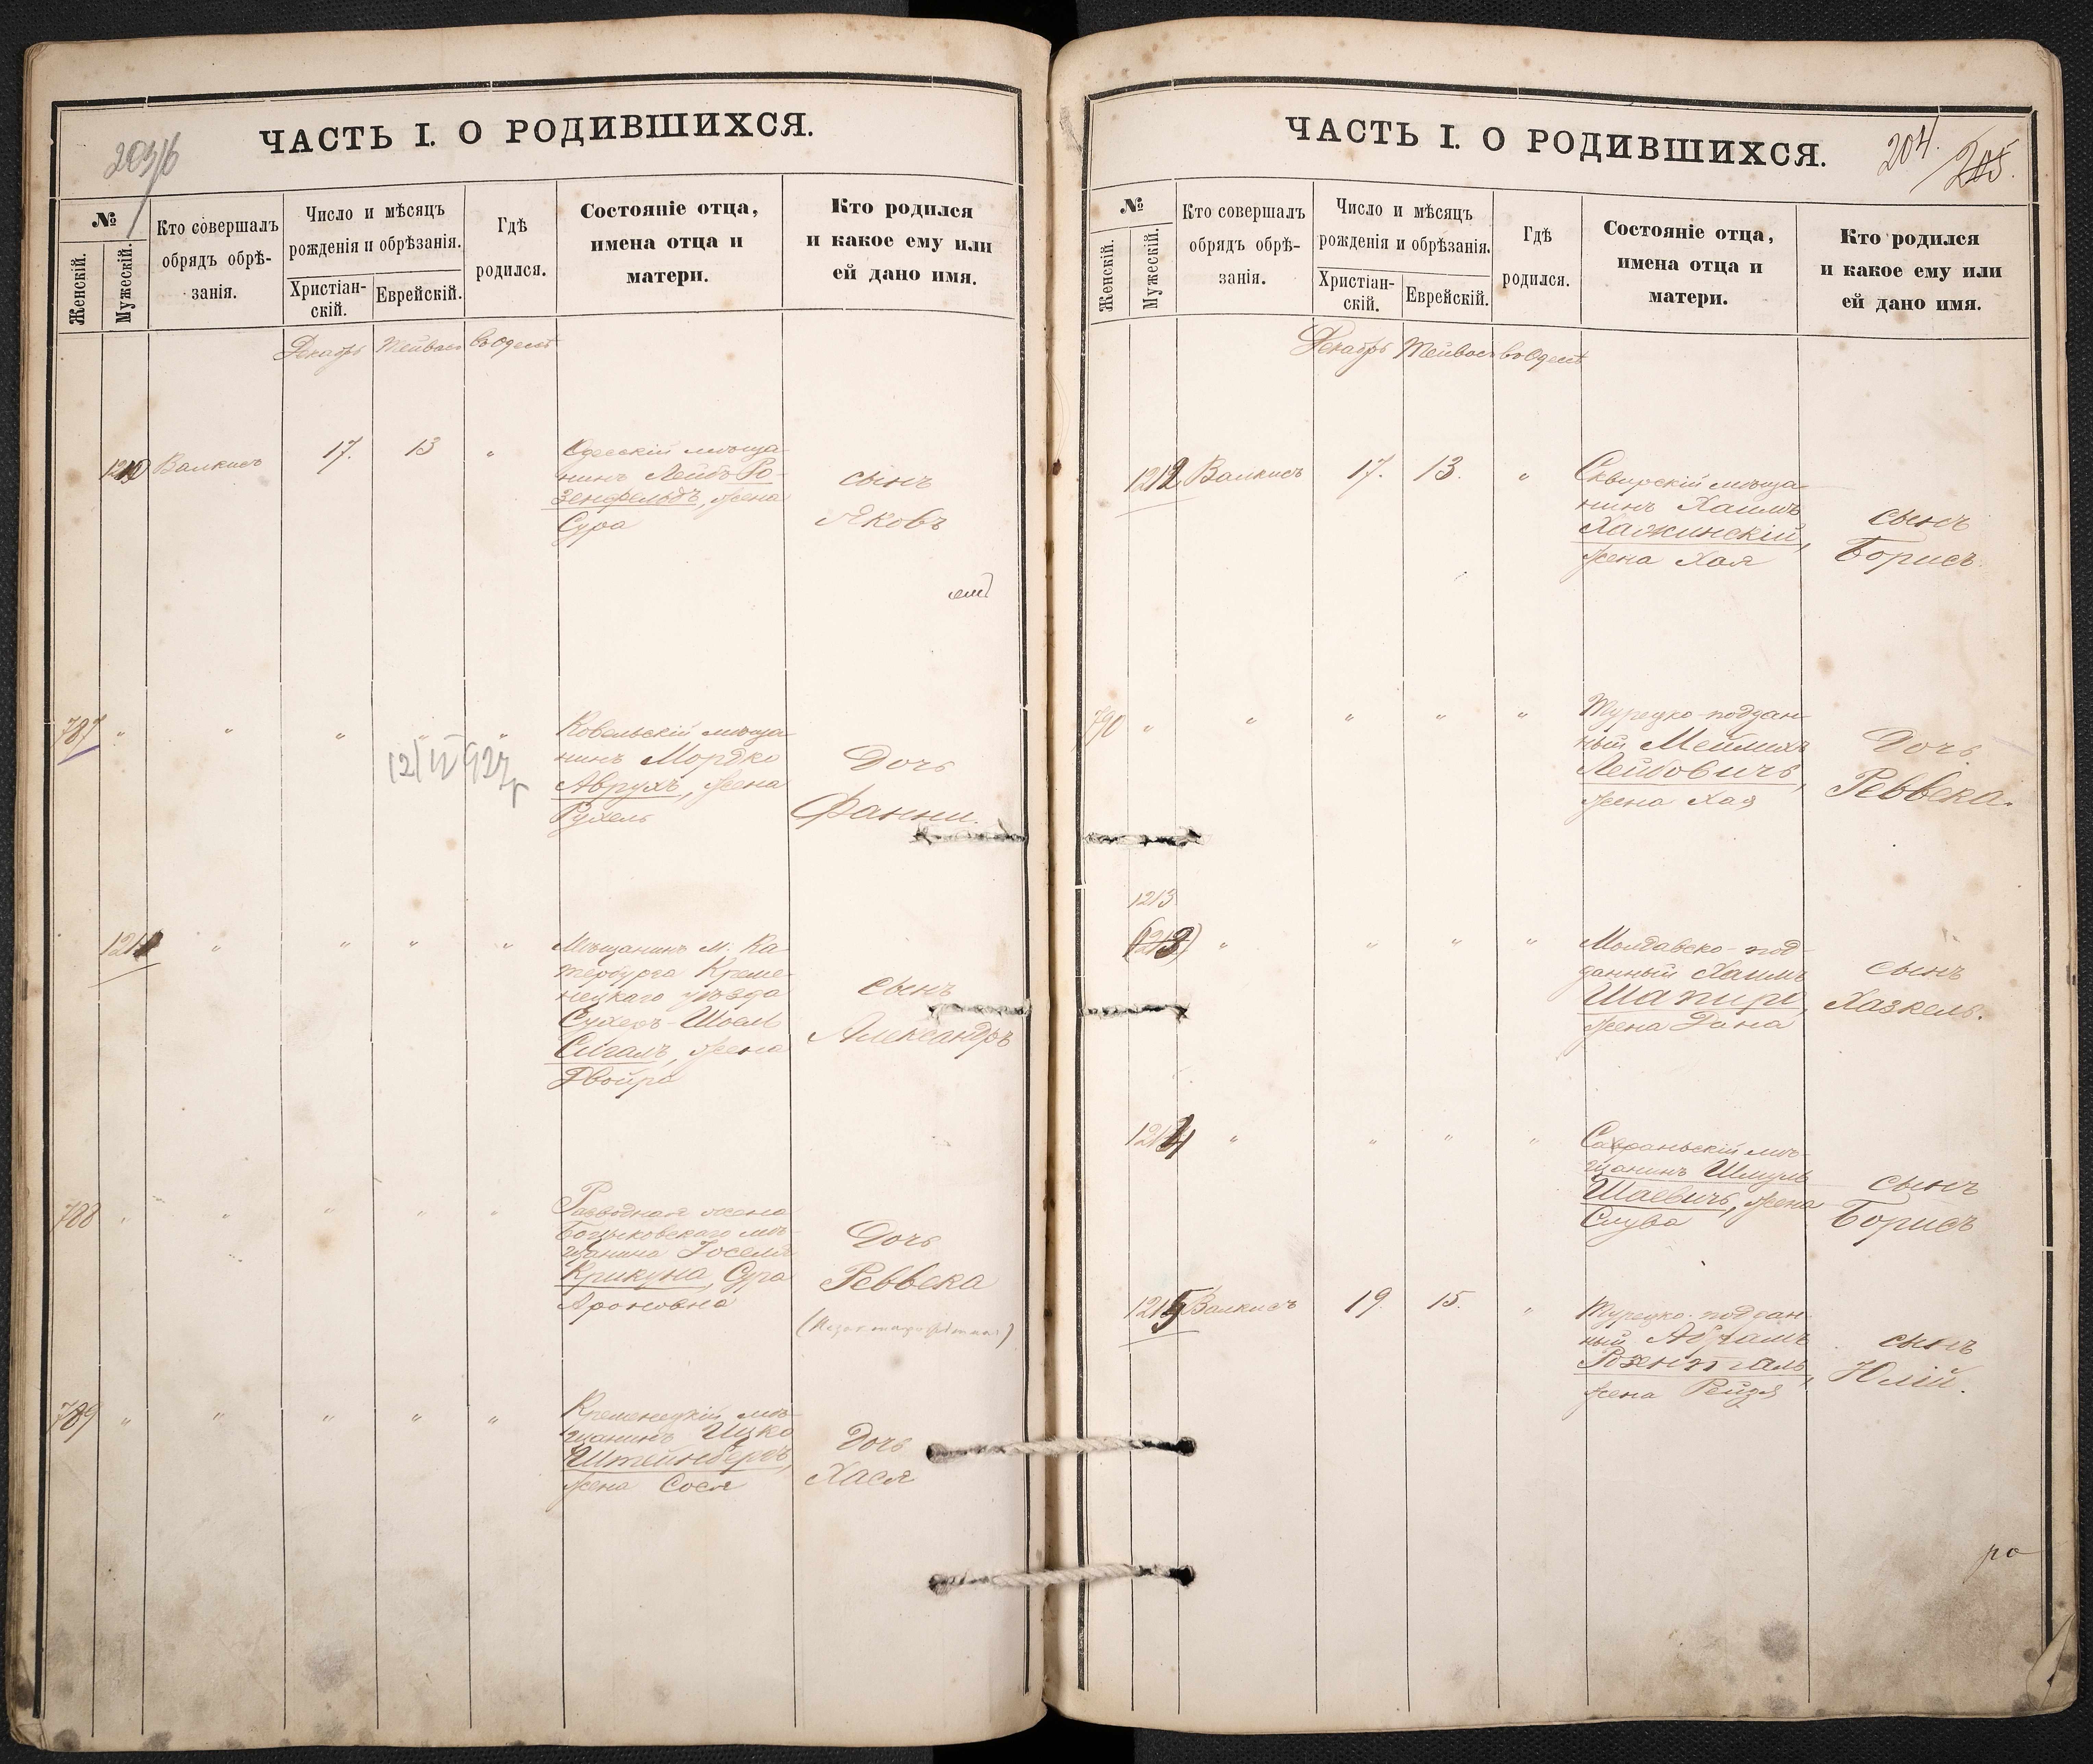 ЧАСТЬ I. О РОДИВШИХСЯ.
№
Женскій.
Мужескій.
Кто совершалъ
обрядъ обрѣ-
занія.
Число и мѣсяцъ
рожденія и обрѣзанія.
Христіан-
скій.
Еврейскій.
Гдѣ
родился.
Состояніе отца,
имена отца и
матери.
Кто родился
и какое ему или
ей дано имя.
Декабрь Тейвесъ въ Одессѣ
1210 Валкисъ 17. 13 "
Одесскій мѣща-
нинъ Лейбъ Ро-
зенфельдъ, жена
Сура
сынъ
Яковъ
787 " " " " "
Ковельскій мѣща-
нинъ Мордко
Аврухъ, жена
Рухель
Дочь
Фанни.
1211 " " " "
Мѣщанинъ м. Ка-
тербурга Креме-
нецкаго уѣзда
Сухеръ-Шоел
Сигалъ, жена
Двойра
сынъ
Александръ
788 " " " " "
Разводная жена
мѣ-
щанина Іоселя
Крикуна, Сура
Ароновна
Дочь
Реввека
789 " " " " "
Кременецкій мѣ-
щанинъ Ицко
Штейнбергъ,
жена Сося
Дочь
Хася
ЧАСТЬ I. О РОДИВШИХСЯ.
204.
205.
№
Женскій.
Мужескій.
Кто совершалъ
обрядъ обрѣ-
занія.
Число и мѣсяцъ
рожденія и обрѣзанія.
Христіан-
скій.
Еврейскій.
Гдѣ
родился.
Состояніе отца,
имена отца и
матери.
Кто родился
и какое ему или
ей дано имя.
Декабрь Тейвесъ въ Одессѣ
1212 Валкисъ 17. 13. "
Сквирскій мѣща-
нинъ Хаимъ
Хажинскій,
жена Хая
сынъ
Борисъ.
790 " " " " "
Турецко-поддан-
ный Мейлихъ
Лейбовичъ,
жена Хая
Дочь
Реввека.
1213
(1213) " " " "
Молдавско-под-
данный Хаимъ
Шапиро,
жена Дина
сынъ
Хазкель.
1214 " " " "
Савраньскій мѣ-
щанинъ Шмуль
Шаевичъ, жена
Слува
сынъ
Борисъ
1215 Валкисъ 19. 15. "
Турецко-поддан-
ный Абрамъ
Розенталь,
жена Рейзя
сынъ
Юлій.